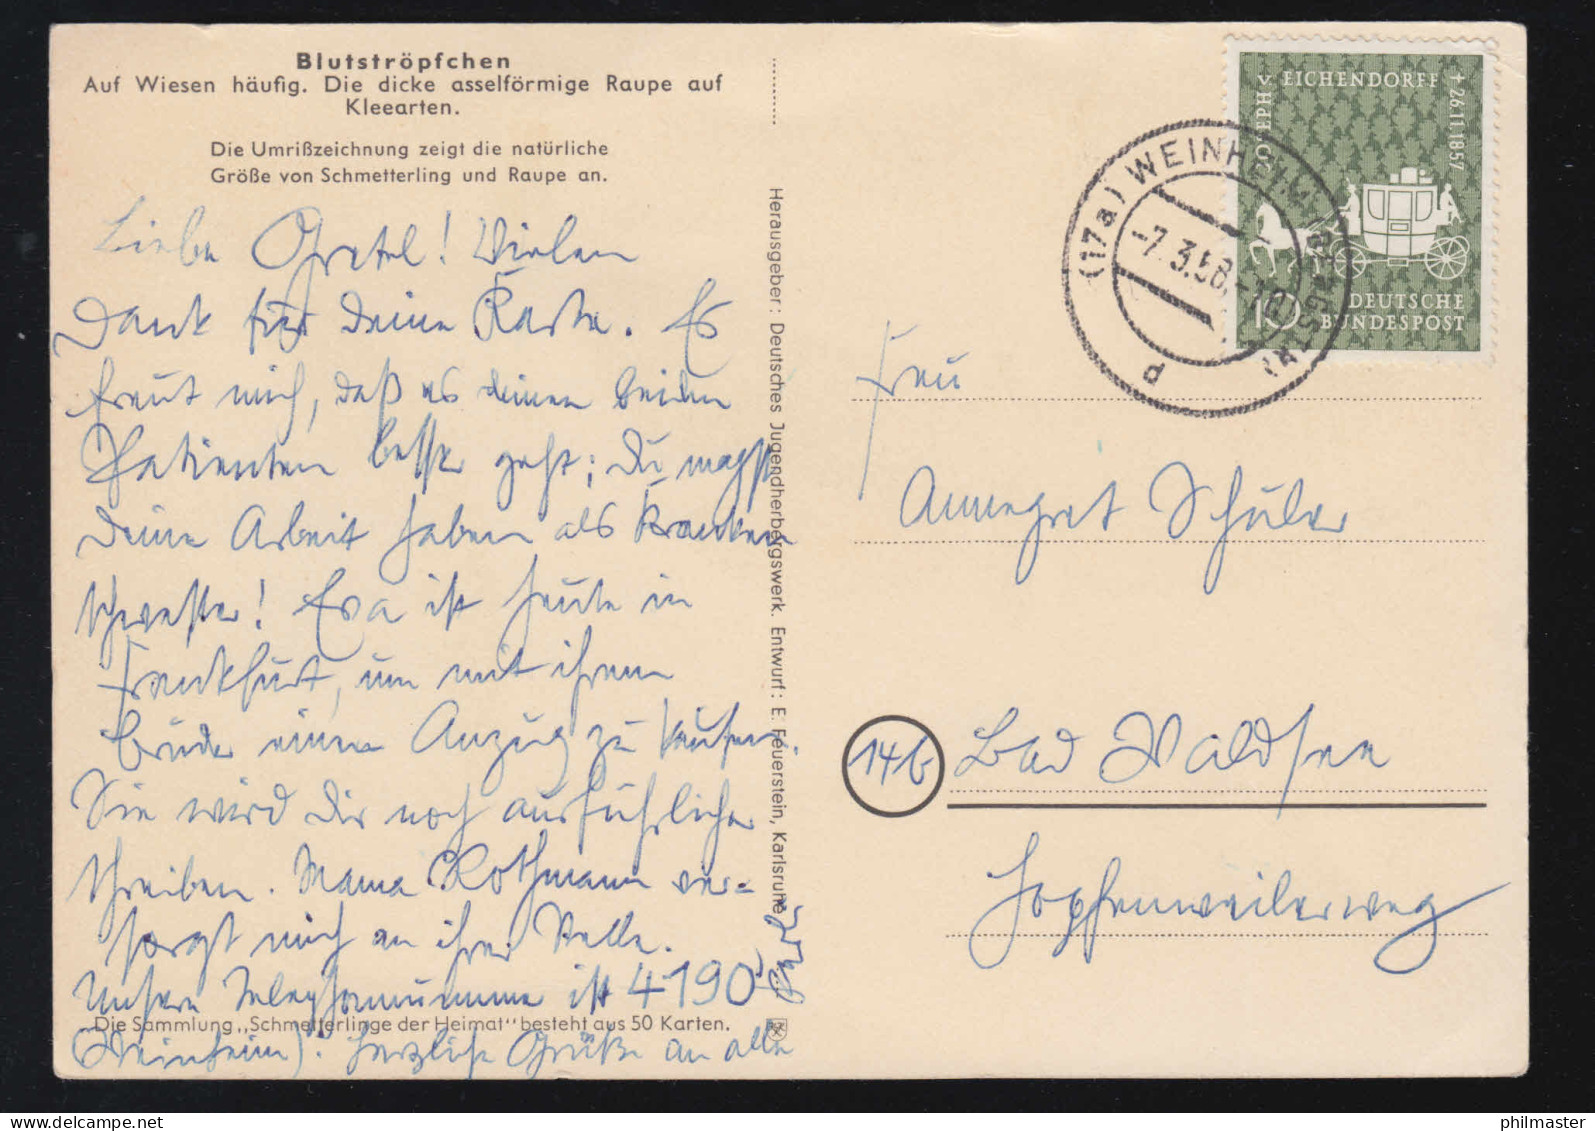 Blutströpfchen
Auf Wiesen häufig. Die dicke asselförmige Raupe auf
Kleearten.
Die Umrißzeichnung zeigt die natürliche
Größe von Schmetterling und Raupe an.
Liebe Gretel! Vielen
Dank für Deine Karte. Es
freut mich, daß es deinen beiden
Patienten besser geht; Du magst
Deine Arbeit haben als Kranken
schwester! Eva ist heute in
Frankfurt, um mit ihrem
Bruder einen Anzug zu kaufen.
Sie wird Dir noch ausführlicher
schreiben. Mama Rothmann ver-
sorgt mich an ihrer Stelle.
Unsere Telephonnummer ist 4190
Die Sammlung „Schmetterlinge der Heimat" besteht aus 50 Karten.
(Weinheim). Herzliche Grüße an alle
Herausgeber: Deutsches Jugendherbergswerk. Entwurf: E. Feuerstein, Karlsruhe
JOSEPH v. EICHENDORFF † 26.11.1857
10 DEUTSCHE
BUNDESPOST
(17a) WEINHEIM (BERGSTR)
-7.3.58.-
d
Frau
Annegret Schüler
14b Bad Waldsee
Hopfenweilerweg
philmaster